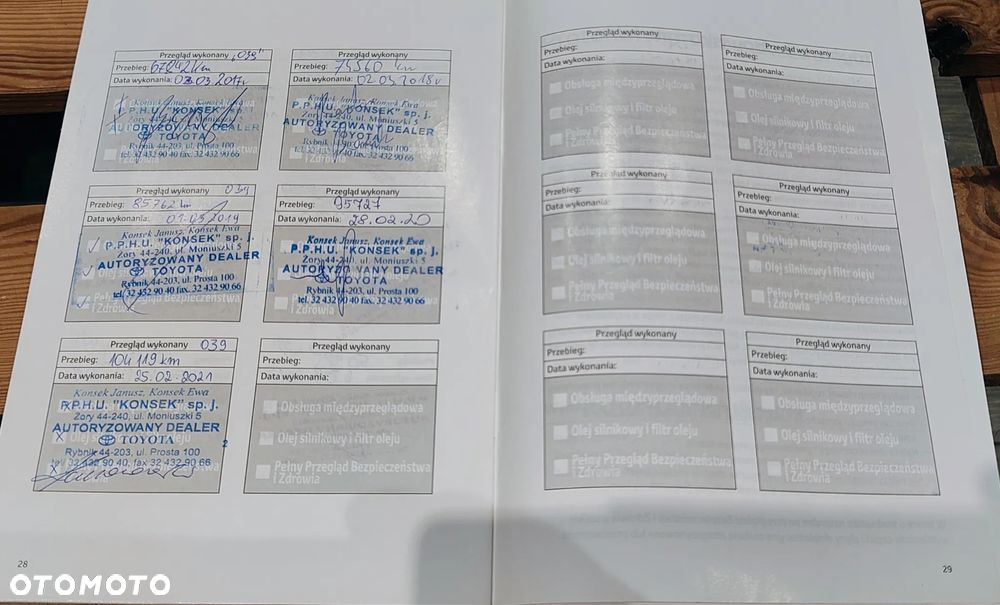 Przegląd wykonany "039"
Przebieg: 67842 km
Data wykonania: 03.03.2017r
Konsek Janusz, Konsek Ewa
P.P.H.U. "KONSEK" sp. j.
Żory 44-240, ul. Moniuszki 5
AUTORYZOWANY DEALER
TOYOTA
Rybnik 44-203, ul. Prosta 100
tel. 32 432 90 40 fax. 32 432 90 66
Przegląd wykonany
Przebieg: 75560 km
Data wykonania: 02.03.2018r
Konsek Janusz, Konsek Ewa
P.P.H.U. "KONSEK" sp. j.
Żory 44-240, ul. Moniuszki 5
AUTORYZOWANY DEALER
TOYOTA
Rybnik 44-203, ul. Prosta 100
tel. 32 432 90 40 fax. 32 432 90 66
Przegląd wykonany 039
Przebieg: 85762 km
Data wykonania: 01.03.2019
Konsek Janusz, Konsek Ewa
P.P.H.U. "KONSEK" sp. j.
Żory 44-240, ul. Moniuszki 5
AUTORYZOWANY DEALER
TOYOTA
Rybnik 44-203, ul. Prosta 100
tel. 32 432 90 40 fax. 32 432 90 66
Pełny Przegląd Bezpieczeństwa
i Zdrowia
Przegląd wykonany
Przebieg: 95727
Data wykonania: 28.02.20
Konsek Janusz, Konsek Ewa
P.P.H.U. "KONSEK" sp. j.
Żory 44-240, ul. Moniuszki 5
AUTORYZOWANY DEALER
TOYOTA
Rybnik 44-203, ul. Prosta 100
tel. 32 432 90 40 fax. 32 432 90 66
Pełny Przegląd Bezpieczeństwa
i Zdrowia
Przegląd wykonany 039
Przebieg: 104 119 km
Data wykonania: 25.02.2021
Konsek Janusz, Konsek Ewa
P.P.H.U. "KONSEK" sp. j.
Żory 44-240, ul. Moniuszki 5
AUTORYZOWANY DEALER
TOYOTA
2
Rybnik 44-203, ul. Prosta 100
tel. 32 432 90 40, fax 32 432 90 66
Przegląd wykonany
Przebieg:
Data wykonania:
Obsługa międzyprzeglądowa
Olej silnikowy i filtr oleju
Pełny Przegląd Bezpieczeństwa
i Zdrowia
28
OTOMOTO
Przegląd wykonany
Przebieg:
Data wykonania:
Obsługa międzyprzeglądowa
Olej silnikowy i filtr oleju
Pełny Przegląd Bezpieczeństwa
i Zdrowia
Przegląd wykonany
Przebieg:
Data wykonania:
Obsługa międzyprzeglądowa
Olej silnikowy i filtr oleju
Pełny Przegląd Bezpieczeństwa
i Zdrowia
Przegląd wykonany
Przebieg:
Data wykonania:
Obsługa międzyprzeglądowa
Olej silnikowy i filtr oleju
Pełny Przegląd Bezpieczeństwa
i Zdrowia
Przegląd wykonany
Przebieg:
Data wykonania:
Obsługa międzyprzeglądowa
Olej silnikowy i filtr oleju
Pełny Przegląd Bezpieczeństwa
i Zdrowia
Przegląd wykonany
Przebieg:
Data wykonania:
Obsługa międzyprzeglądowa
Olej silnikowy i filtr oleju
Pełny Przegląd Bezpieczeństwa
i Zdrowia
Przegląd wykonany
Przebieg:
Data wykonania:
Obsługa międzyprzeglądowa
Olej silnikowy i filtr oleju
Pełny Przegląd Bezpieczeństwa
i Zdrowia
29